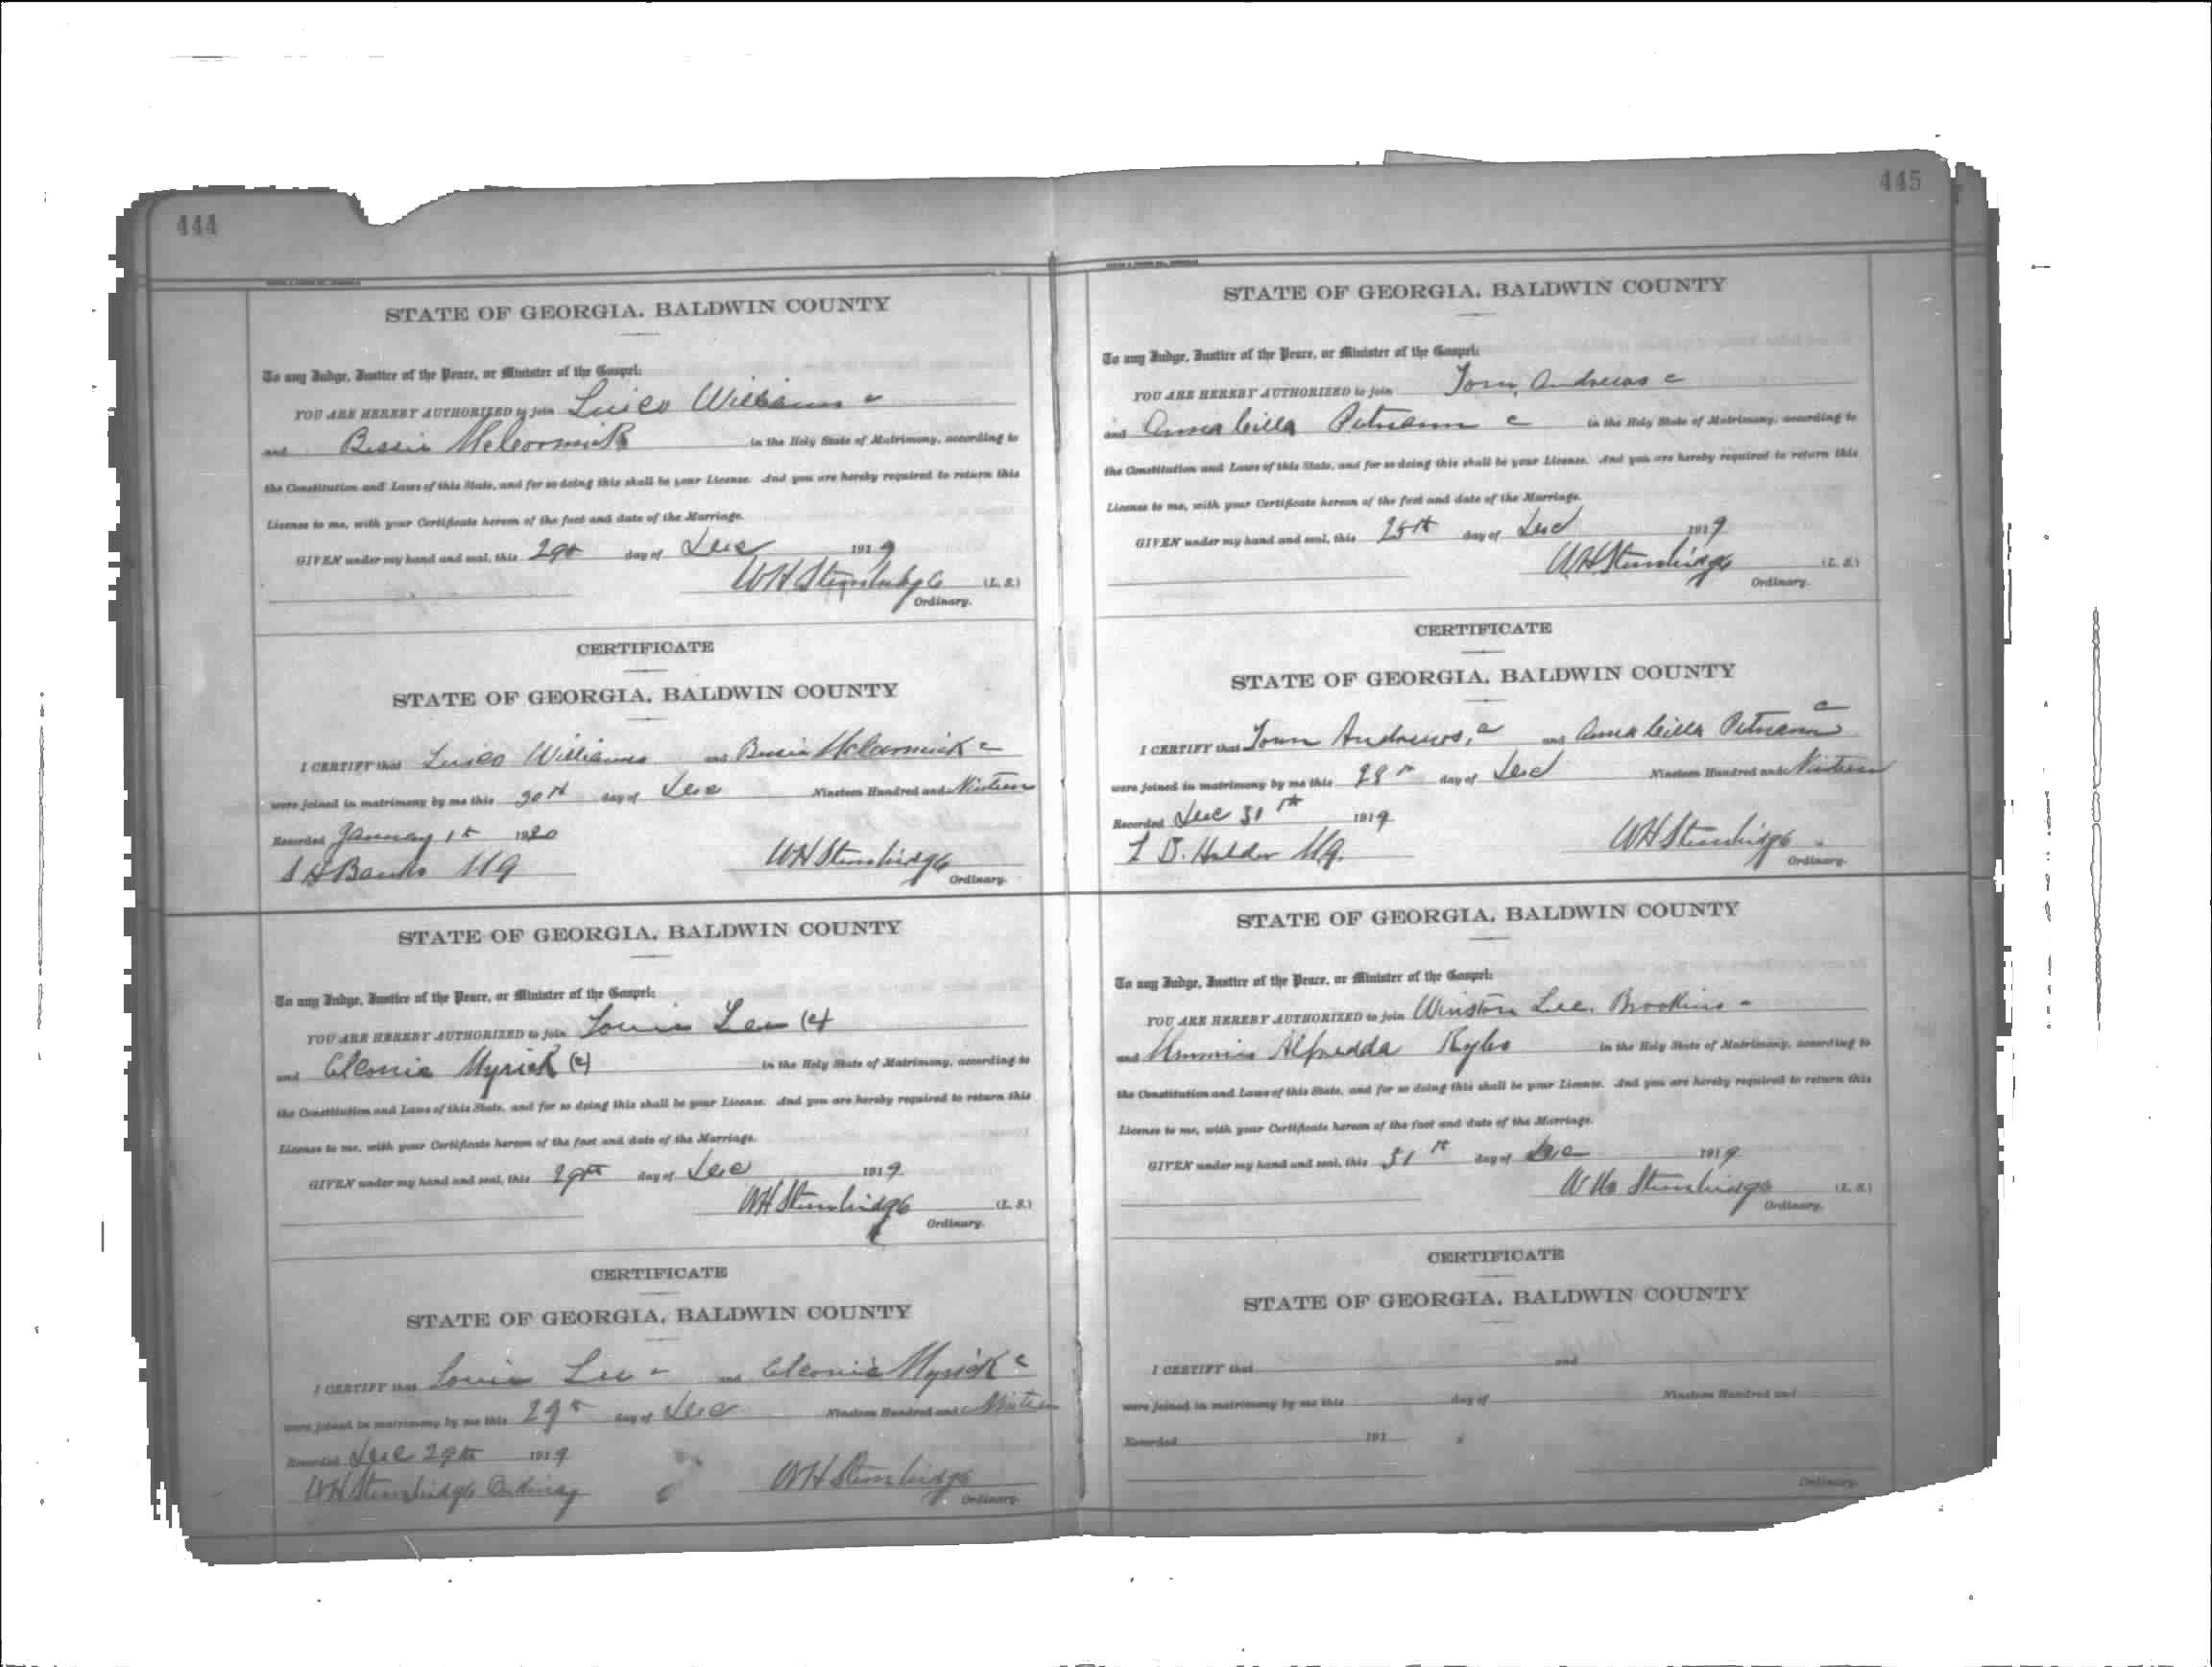 444
STATE OF GEORGIA, BALDWIN COUNTY
To any Judge, Justice of the Peace, or Minister of the Gospel:
YOU ARE HEREBY AUTHORIZED to join Williams c
and Bessie McCormick in the Holy State of Matrimony, according to
the Constitution and Laws of this State, and for so doing this shall be your License. And you are hereby required to return this
License to me, with your Certificate hereon of the fact and date of the Marriage.
GIVEN under my hand and seal, this 29th day of Dec 1919
WH Stembridge (L. S.)
Ordinary.
CERTIFICATE
STATE OF GEORGIA, BALDWIN COUNTY
I CERTIFY that Williams and Bessie McCormick c
were joined in matrimony by me this 30th day of Dec Nineteen Hundred and Nineteen
Recorded January 1st 1920
Banks MG WH Stembridge
Ordinary.
STATE OF GEORGIA, BALDWIN COUNTY
To any Judge, Justice of the Peace, or Minister of the Gospel:
YOU ARE HEREBY AUTHORIZED to join Louis Lee (c)
and Cleonia Myrick (c) in the Holy State of Matrimony, according to
the Constitution and Laws of this State, and for so doing this shall be your License. And you are hereby required to return this
License to me, with your Certificate hereon of the fact and date of the Marriage.
GIVEN under my hand and seal, this 29th day of Dec 1919
WH Stembridge (L. S.)
Ordinary.
CERTIFICATE
STATE OF GEORGIA, BALDWIN COUNTY
I CERTIFY that Louis Lee c and Cleonia Myrick c
were joined in matrimony by me this 29th day of Dec Nineteen Hundred and Nineteen
Recorded Dec 29th 1919
WH Stembridge Ordinary WH Stembridge
Ordinary.
445
STATE OF GEORGIA, BALDWIN COUNTY
To any Judge, Justice of the Peace, or Minister of the Gospel:
YOU ARE HEREBY AUTHORIZED to join Tom Andrews c
and Anna Cilla Putnam c in the Holy State of Matrimony, according to
the Constitution and Laws of this State, and for so doing this shall be your License. And you are hereby required to return this
License to me, with your Certificate hereon of the fact and date of the Marriage.
GIVEN under my hand and seal, this 25th day of Dec 1919
WH Stembridge (L. S.)
Ordinary.
CERTIFICATE
STATE OF GEORGIA, BALDWIN COUNTY
I CERTIFY that Tom Andrews, c and Anna Cilla Putnam c
were joined in matrimony by me this day of Dec Nineteen Hundred and Nineteen
Recorded Dec 31st 1919
Holder MG. WH Stembridge
Ordinary.
STATE OF GEORGIA, BALDWIN COUNTY
To any Judge, Justice of the Peace, or Minister of the Gospel:
YOU ARE HEREBY AUTHORIZED to join Winston Lee Brookins
and Alfredda in the Holy State of Matrimony, according to
the Constitution and Laws of this State, and for so doing this shall be your License. And you are hereby required to return this
License to me, with your Certificate hereon of the fact and date of the Marriage.
GIVEN under my hand and seal, this 31st day of Dec 1919
WH Stembridge (L. S.)
Ordinary.
CERTIFICATE
STATE OF GEORGIA, BALDWIN COUNTY
I CERTIFY that and
were joined in matrimony by me this day of Nineteen Hundred and
Recorded 191
Ordinary.